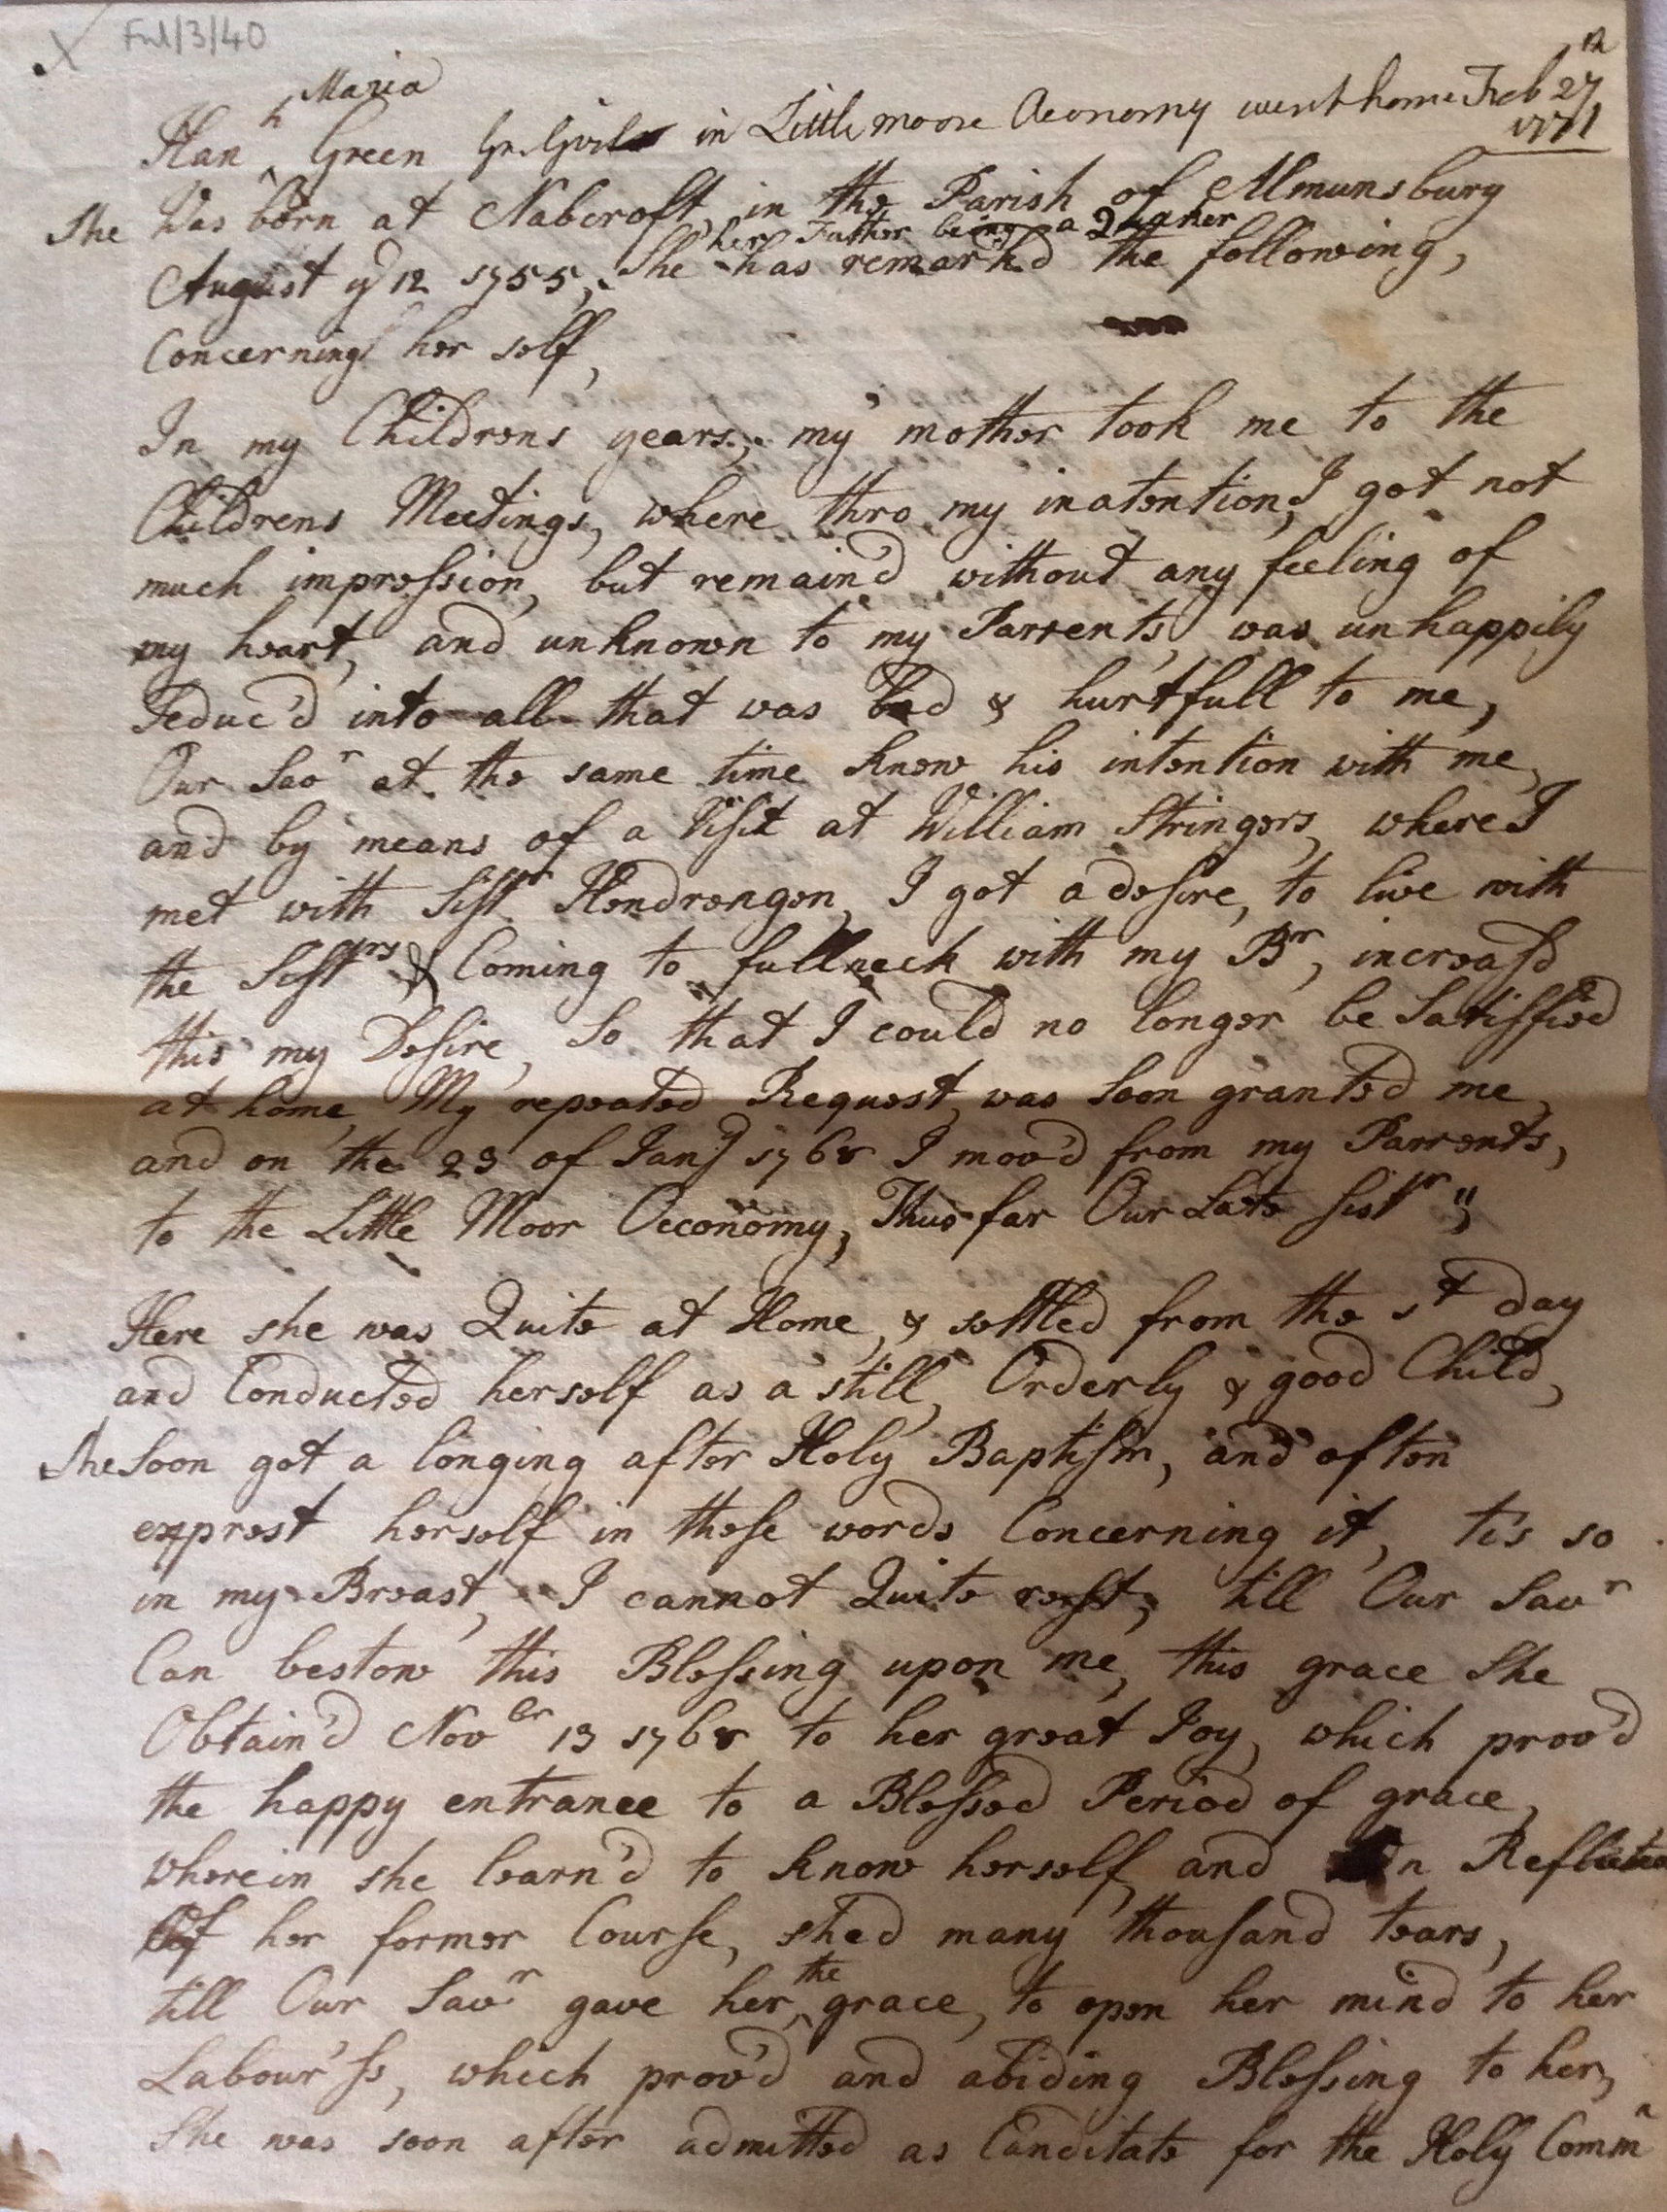 Ful/3/40
Maria
Han^h Green Gr. Girl in Little moore Aeconomy went home Feb 27^th
1771
She Was born at Nabcroft, in the Parish of Almunsbury
her Father being a Quaker
August y^e 12 1755, She has remark'd the following,
Concerning her self,
In my Childrens years, my mother took me to the
Childrens Meetings, where thro my inatention, I got not
much impression, but remain'd without any feeling of
my heart, and unknown to my Parrents, was unhappily
Seduc'd into all that was bad & hurtfull to me,
Our Sav^r at the same time knew his intention with me,
and by means of a Visit at William Stringers, where I
met with Sist^r Hendrengen, I got a desire, to live with
the Sist^rs & Coming to fullneck with my B^r, increasd
this my Desire, So that I could no longer be Satisfied
at home, My repeated Request, was Soon granted me,
and on the 23 of Jan^y 1768 I mov'd from my Parrents,
to the Little Moor Oeconomy, Thus far Our Late Sist^r,,
Here she was Quite at Home, & settled from the 1^st day
and Conducted herself as a still, Orderly & good Child,
She Soon got a longing after Holy Baptism, and often
exprest herself in these words Concerning it, tis so
in my Breast, I cannot Quite rest, till Our Sav^r
Can bestow this Blessing upon me, this grace She
Obtain'd Nov^br 13 1768 to her great Joy, which prov'd
the happy entrance to a Blessed Period of grace,
wherein she learn'd to know herself, and On Reflection
Of her former Course, shed many thousand tears,
the
till Our Sav^r gave her grace, to open her mind to her
Labour'ss, which prov'd and abiding Blessing to her,
She was soon after admitted as Canditate for the Holy Comm^n